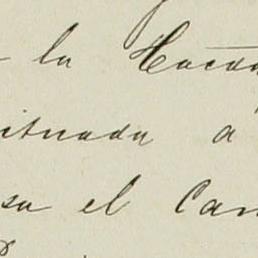 la Hacda
situada a
sa el Cam